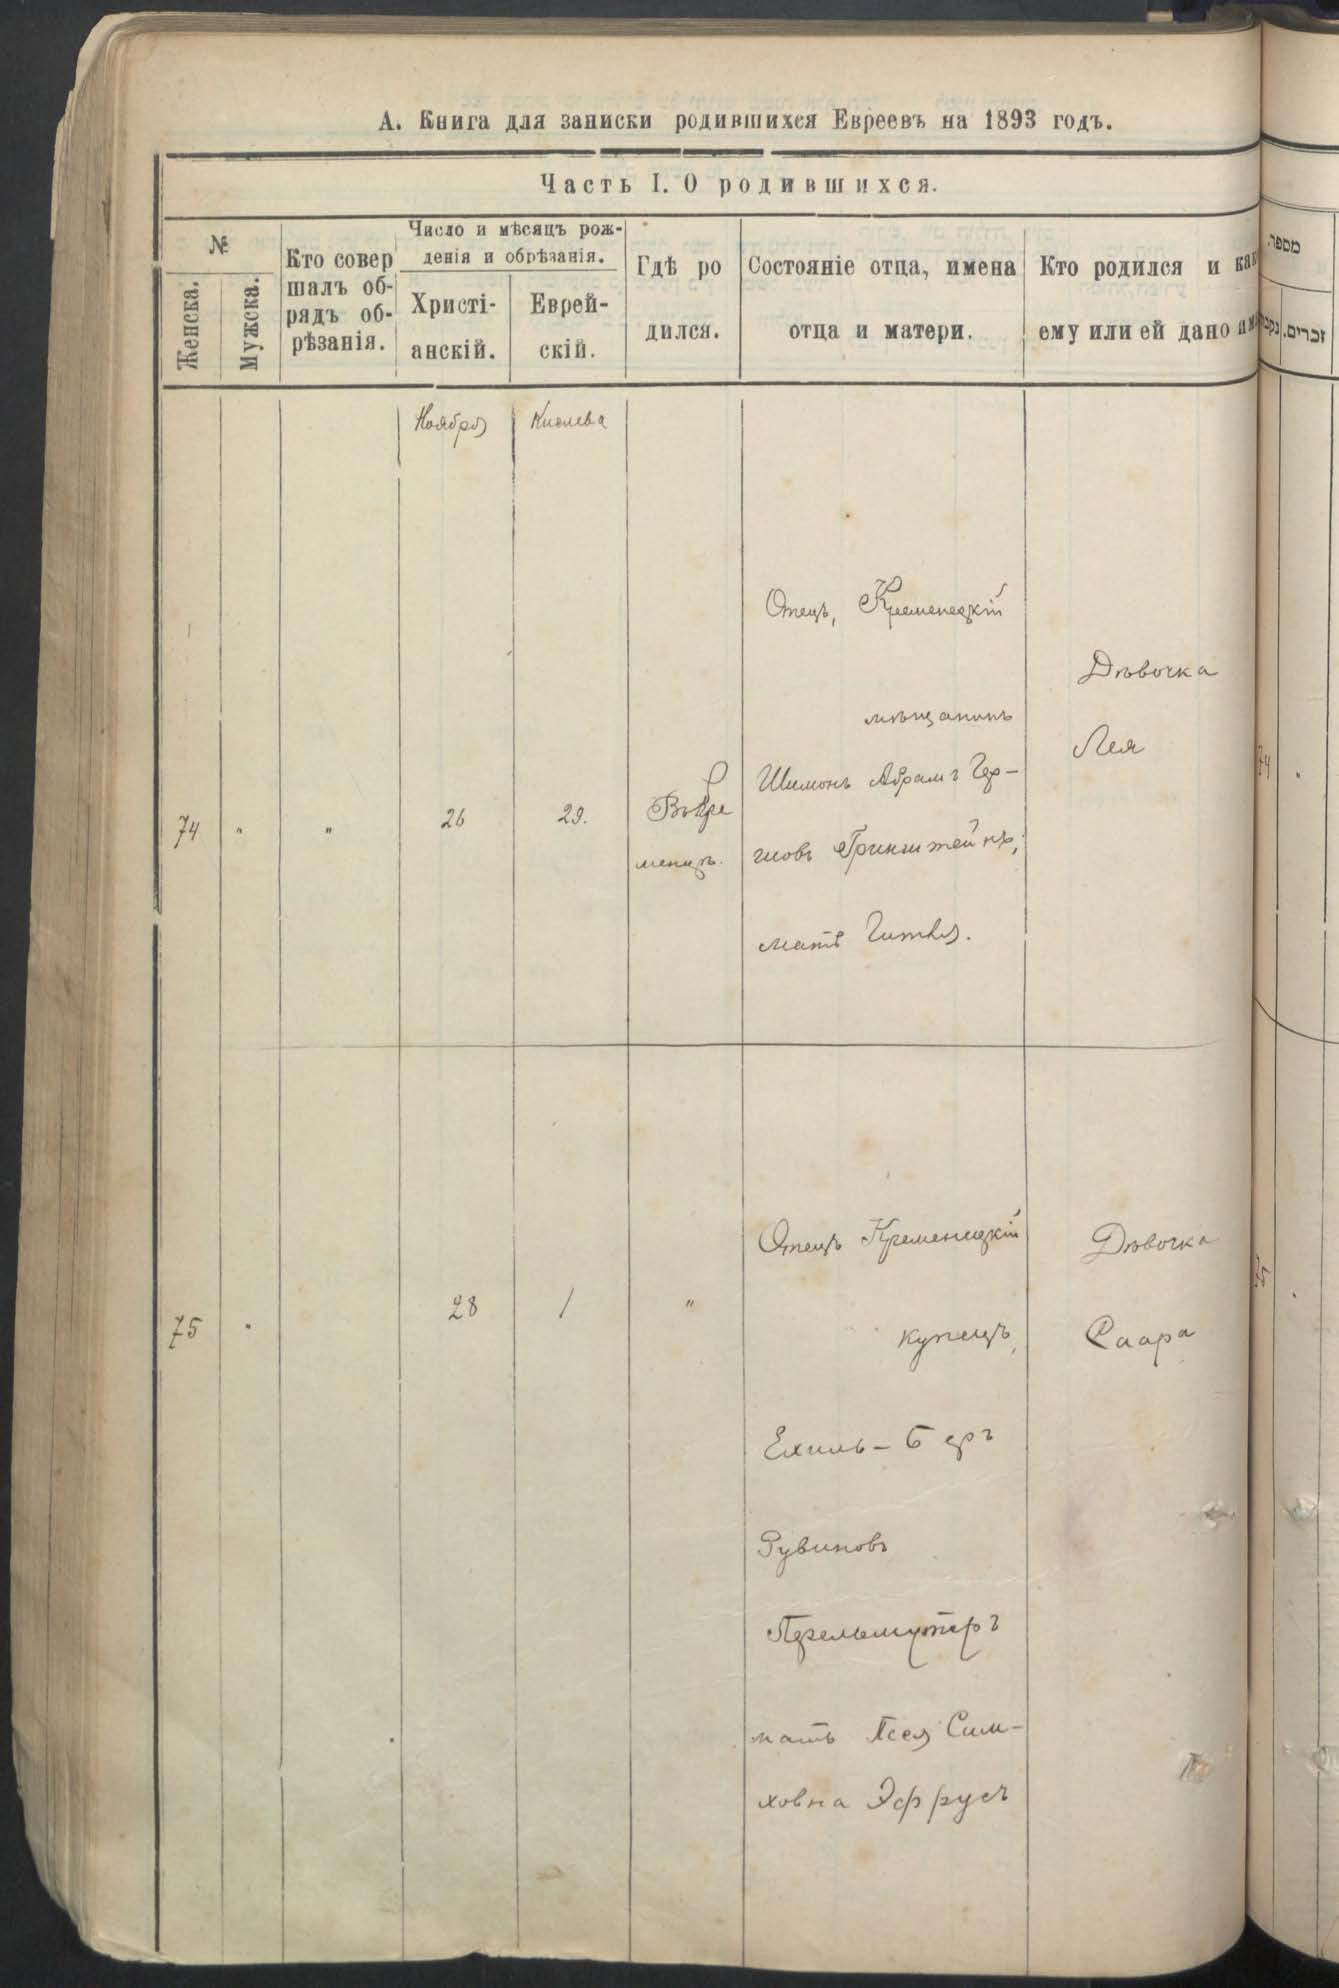 А. Книга для записки родившихся Евреевъ на 1893 годъ.
Часть I. О родившихся.
№
Женска.
Мужска.
Кто совер
шалъ об-
рядъ об-
рѣзанія.
Число и мѣсяцъ рож-
денія и обрѣзанія.
Христі-
анскій.
Еврей-
скій.
Гдѣ ро
дился.
Состояніе отца, имена
отца и матери.
Кто родился и как
ему или ей дано им
Ноября
Кислева
74 " " 26 29.
Въ Кре
менцѣ.
Отецъ, Кременецкій
мѣщанинъ
Шимонъ Абрамъ Гер-
шовъ Гринштейнъ,
мать Гитля.
Дѣвочка
Лея
75 " 28 1 "
Отецъ Кременецкій
купецъ,
Ехиль-Беръ
Рувиновъ
Перельмутеръ
мать Песя Сим-
ховна Эфрусъ
Дѣвочка
Саара
מספר.
זכרים.
74
75